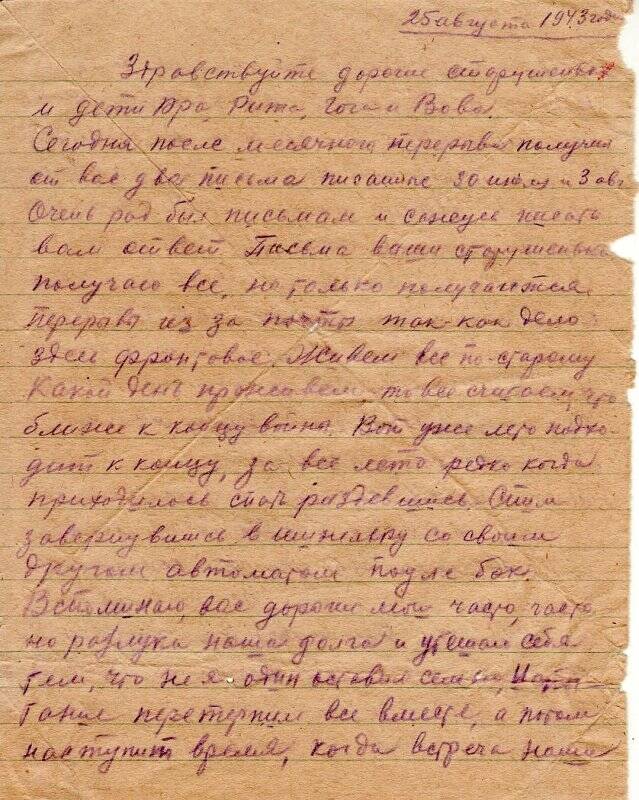 25 августа 1943 года
Здравствуйте дорогие старушенька
и дети Ира, Рита, Гога и Вова.
Сегодня после месячного перерыва получил
от вас два письма писанные 20 июля и 3 авг
Очень рад был письмам и сажусь писать
вам ответ. Письма ваши старушенька
получаю все, но только получаются
перерывы из за почты так-как дело
здесь фронтовое. Живем все по-старому
Какой день проживем, то все считаем, что
ближе к концу войны. Вот уже лето подхо-
дит к концу, за все лето редко когда
приходилось спать раздевшись. Спим
завернувшись в шинельку со своим
другом автоматом под бок.
Вспоминаю, вас дорогие мои часто, часто
но разлука наша долга и утешаю себя
тем, что не я один оставил семью,
перетерпим все вместе, а потом
наступит время, когда встреча наша